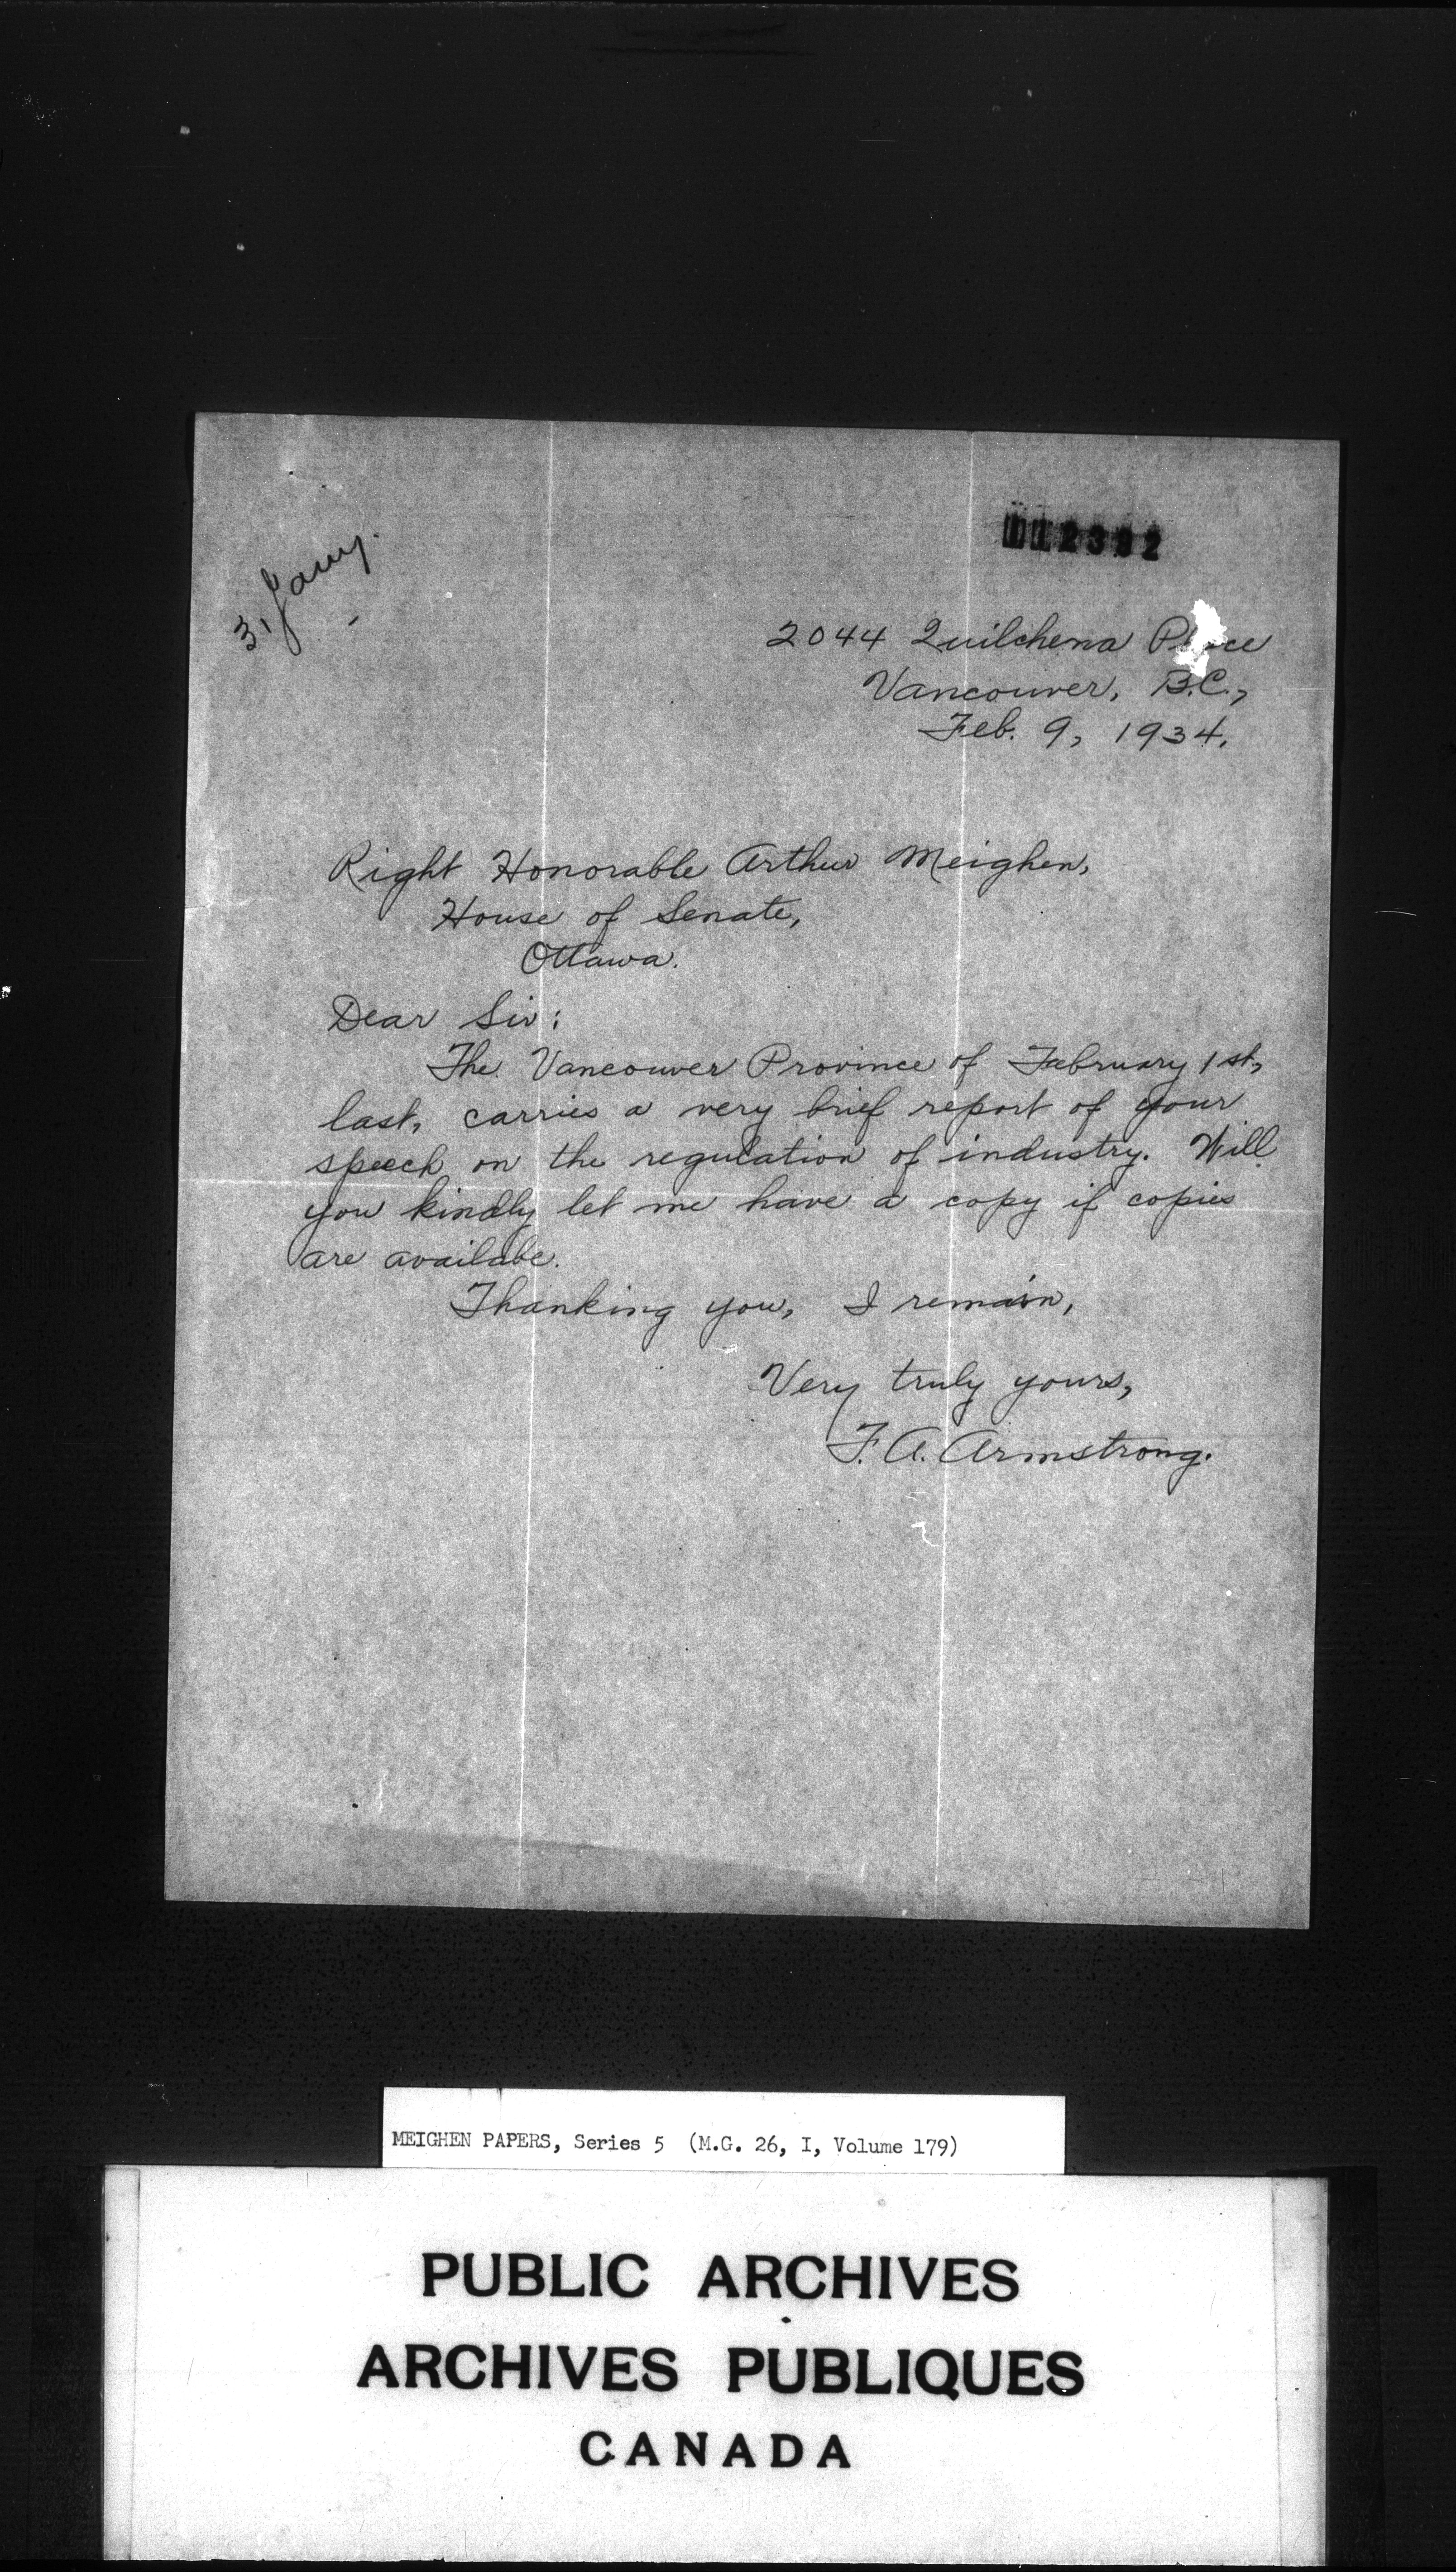 31 Jany.
112392
2044 Quilchena Place
Vancouver, B.C.,
Feb. 9, 1934.
Right Honorable Arthur Meighen,
House of Senate,
Ottawa.
Dear Sir:
The Vancouver Province of February 1st,
last, carries a very brief report of your
speech on the regulation of industry. Will
you kindly let me have a copy if copies
are availabe.
Thanking you, I remain,
Very truly yours,
F. A. Armstrong.
MEIGHEN PAPERS, Series 5 (M.G. 26, I, Volume 179)
PUBLIC ARCHIVES
ARCHIVES PUBLIQUES
CANADA